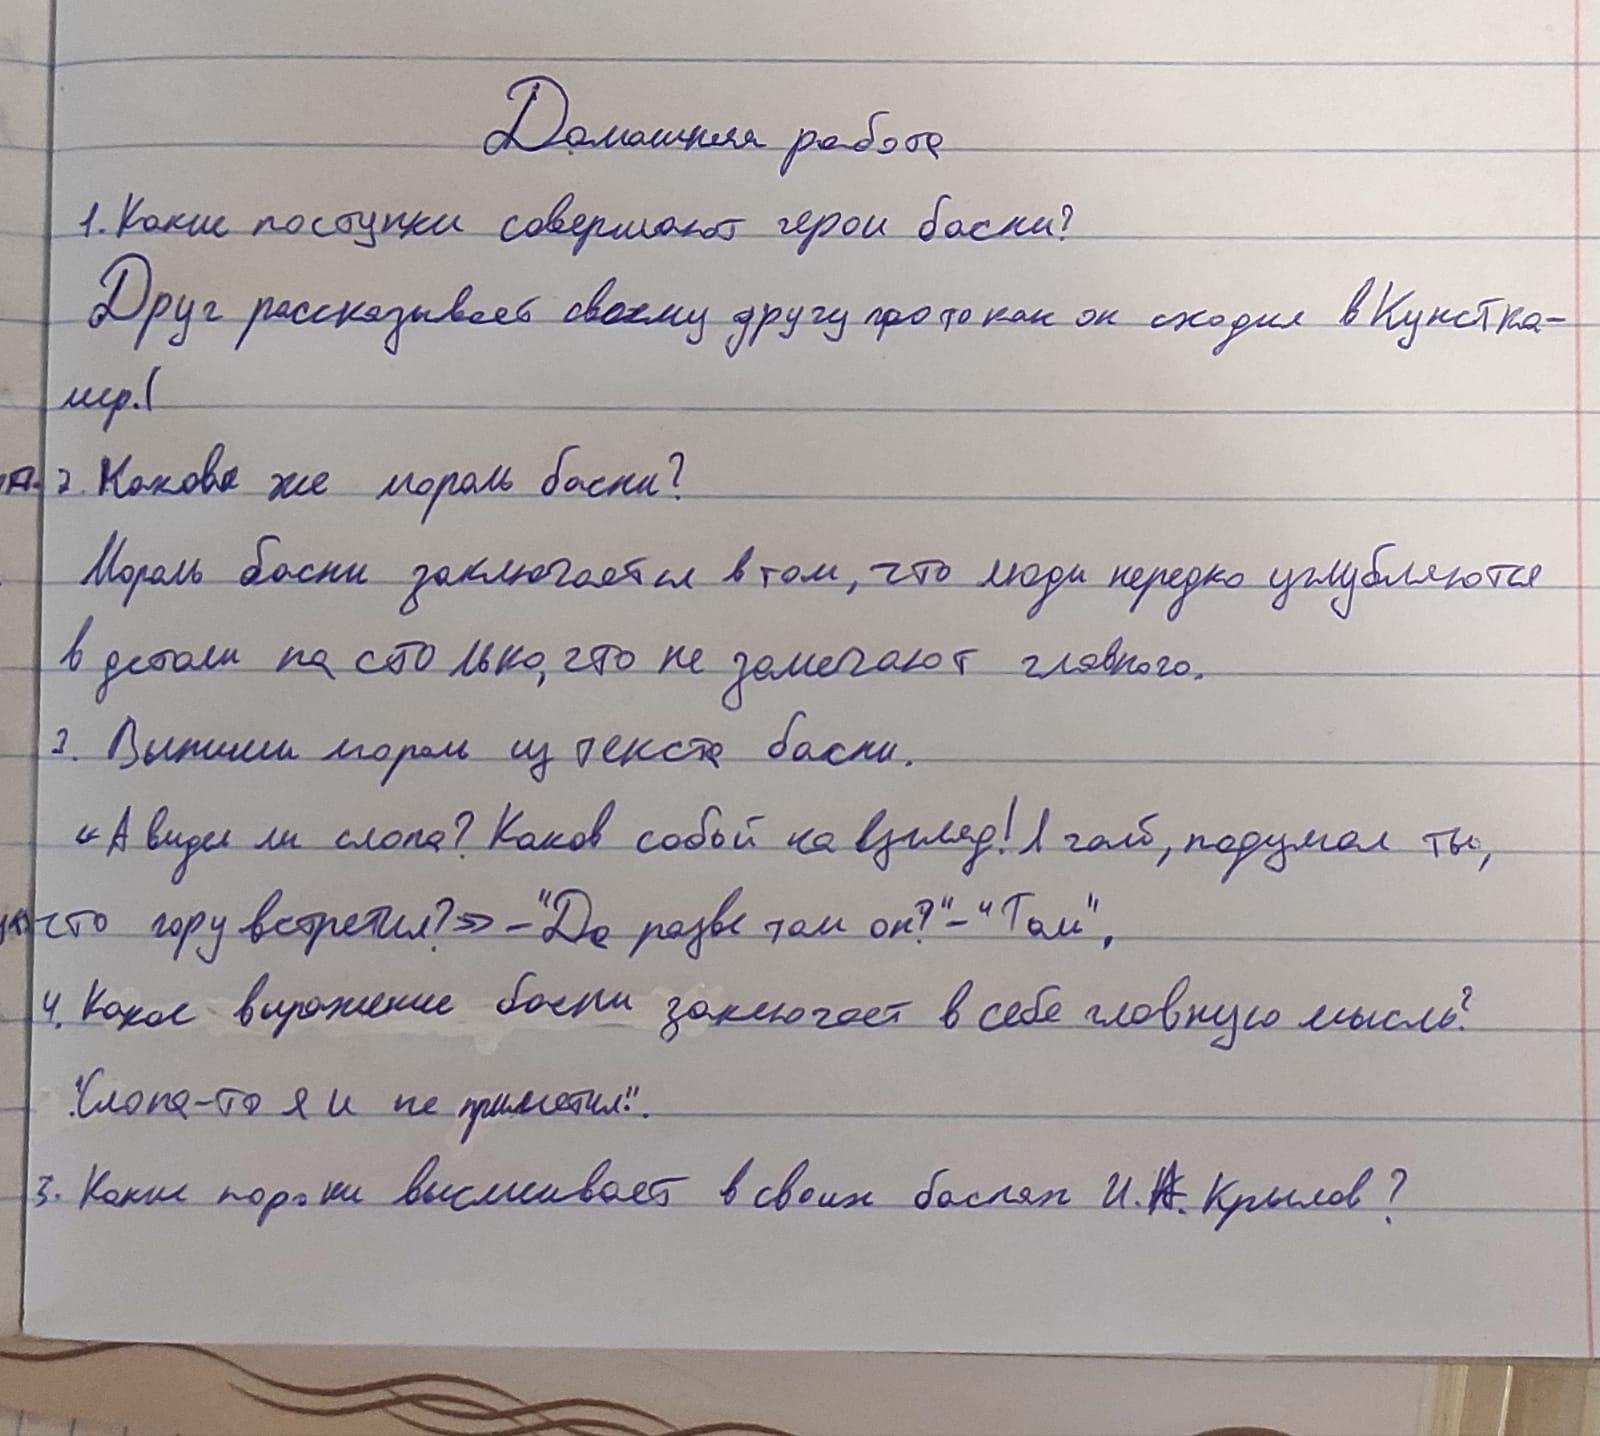 Домашняя работа
1. Какие поступки совершают герои басни?
Друг рассказывает своему другу про то как он сходил в Кунстка-
мер.(
2. Какова же мораль басни?
Мораль басни заключается в том, что люди нередко углубляются
в детали на столько, что не замечают главного.
3. Выпиши мораль из текста басни.
«А видел ли слона? Каков собой на взгляд! Я чай, подумал ты,
что гору встретил?» – "Да разве там он?" – "Там".
4. Какое выражение басни заключает в себе главную мысль?
"Слона-то я и не приметил".
3. Какие пороки высмеивает в своих баснях И.А. Крылов?